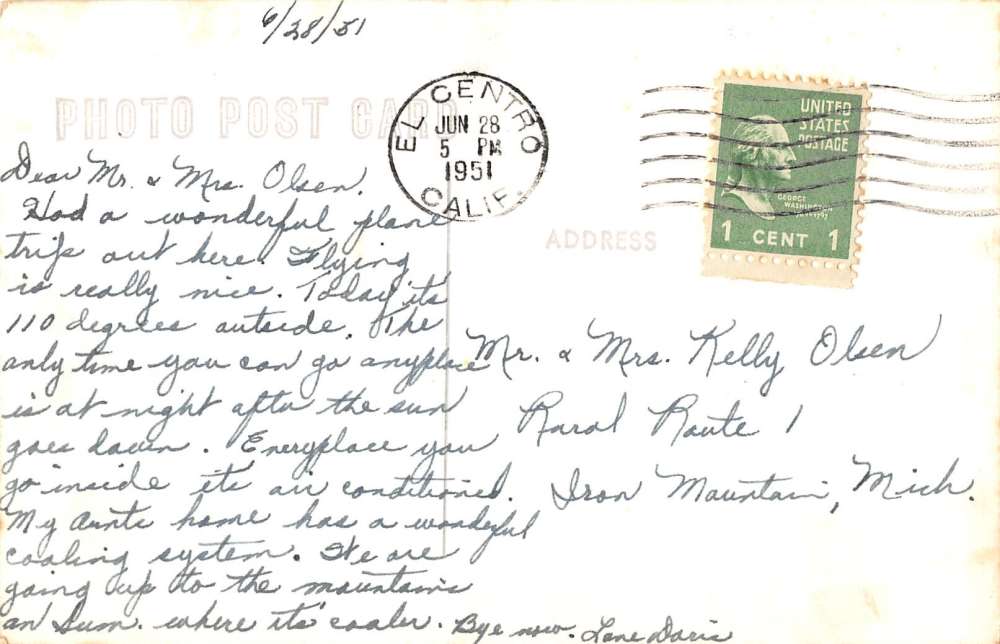 6/28/51
PHOTO POST CARD
EL CENTRO
JUN 28
5 PM
1951
CALIF.
UNITED
STATES
POSTAGE
GEORGE
WASHINGTON
1 CENT 1
ADDRESS
Dear Mr. & Mrs. Olsen,
Had a wonderful plane
trip out here. Flying
is really nice. Today it's
110 degrees outside. The
only time you can go anyplace
is at night after the sun
goes down. Everyplace you
go inside its air conditioned.
My Aunts home has a wonderful
cooling system. We are
going up to the mountains
on Sun. where it's cooler. Bye now. Love Doris
Mr. & Mrs. Kelly Olsen
Rural Route 1
Iron Mountain, Mich.